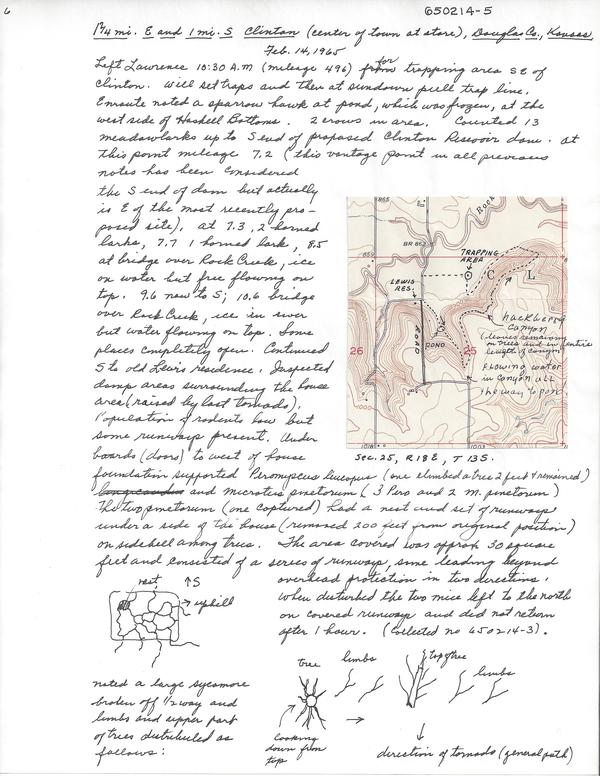 6
650214-5
1 3/4 mi. E and 1 mi. S Clinton (center of town at store), Douglas Co., Kansas,
Feb. 14, 1965
Left Lawrence 10:30 A.M (mileage 496) for from trapping area SE of
Clinton. Will set traps and then at sundown pull trap line.
Enroute noted a sparrow hawk at pond, which was frozen, at the
west side of Haskell Bottoms. 2 crows in area. Counted 13
meadowlarks up to S end of proposed Clinton Resevoir dam. At
this point mileage 7.2 (this vantage point in all previous
notes has been considered
the S end of dam but actually
is E of the most recently pro-
posed site), at 7.3, 2 horned
larks, 7.7 1 horned lark, 8.5
at bridge over Rock Creek, ice
on water but free flowing on
top. 9.6 now to S; 10.6 bridge
over Rock Creek, ice in river
but water flowing on top. Some
places completely open. Continued
S to old Lewis residence. Inspected
damp areas surrounding the house
area (raised by last tornado).
Population of rodents low but
some runways present. Under
boards (doors) to west of house
foundation supported Peromyscus leucopus (one climbed a tree 2 feet & remained)
and microtus pinetorum (3 Pero and 2 m. pinetorum)
The two pinetorum (one captured) had a nest and set of runways
under a side of the house (removed 200 feet from original position)
on sidehill among trees. The area covered was approx 30 square
feet and consisted of a series of runways, some leading beyond
overhead protection in two directions.
When disturbed the two mice left to the north
on covered runways and did not return
after 1 hour. (Collected no 650214-3).
nest
↑S
→ uphill
noted a large sycamore
broken off 1/2 way and
limbs and upper part
of trees distributed as
follows:
tree
limbs
top of tree
limbs
Looking
down from
top
direction of tornado (general path)
865
Rock
859
BR 862
TRAPPING
AREA
C L
LEWIS
RES.
ROAD
POND
26
25
hackberry
Canyon
(leaves remaining
on trees and in entire
length of canyon)
Flowing water
in canyon all
the way to pond
1000
1018
1003
Sec. 25, R 18 E, T 13 S.